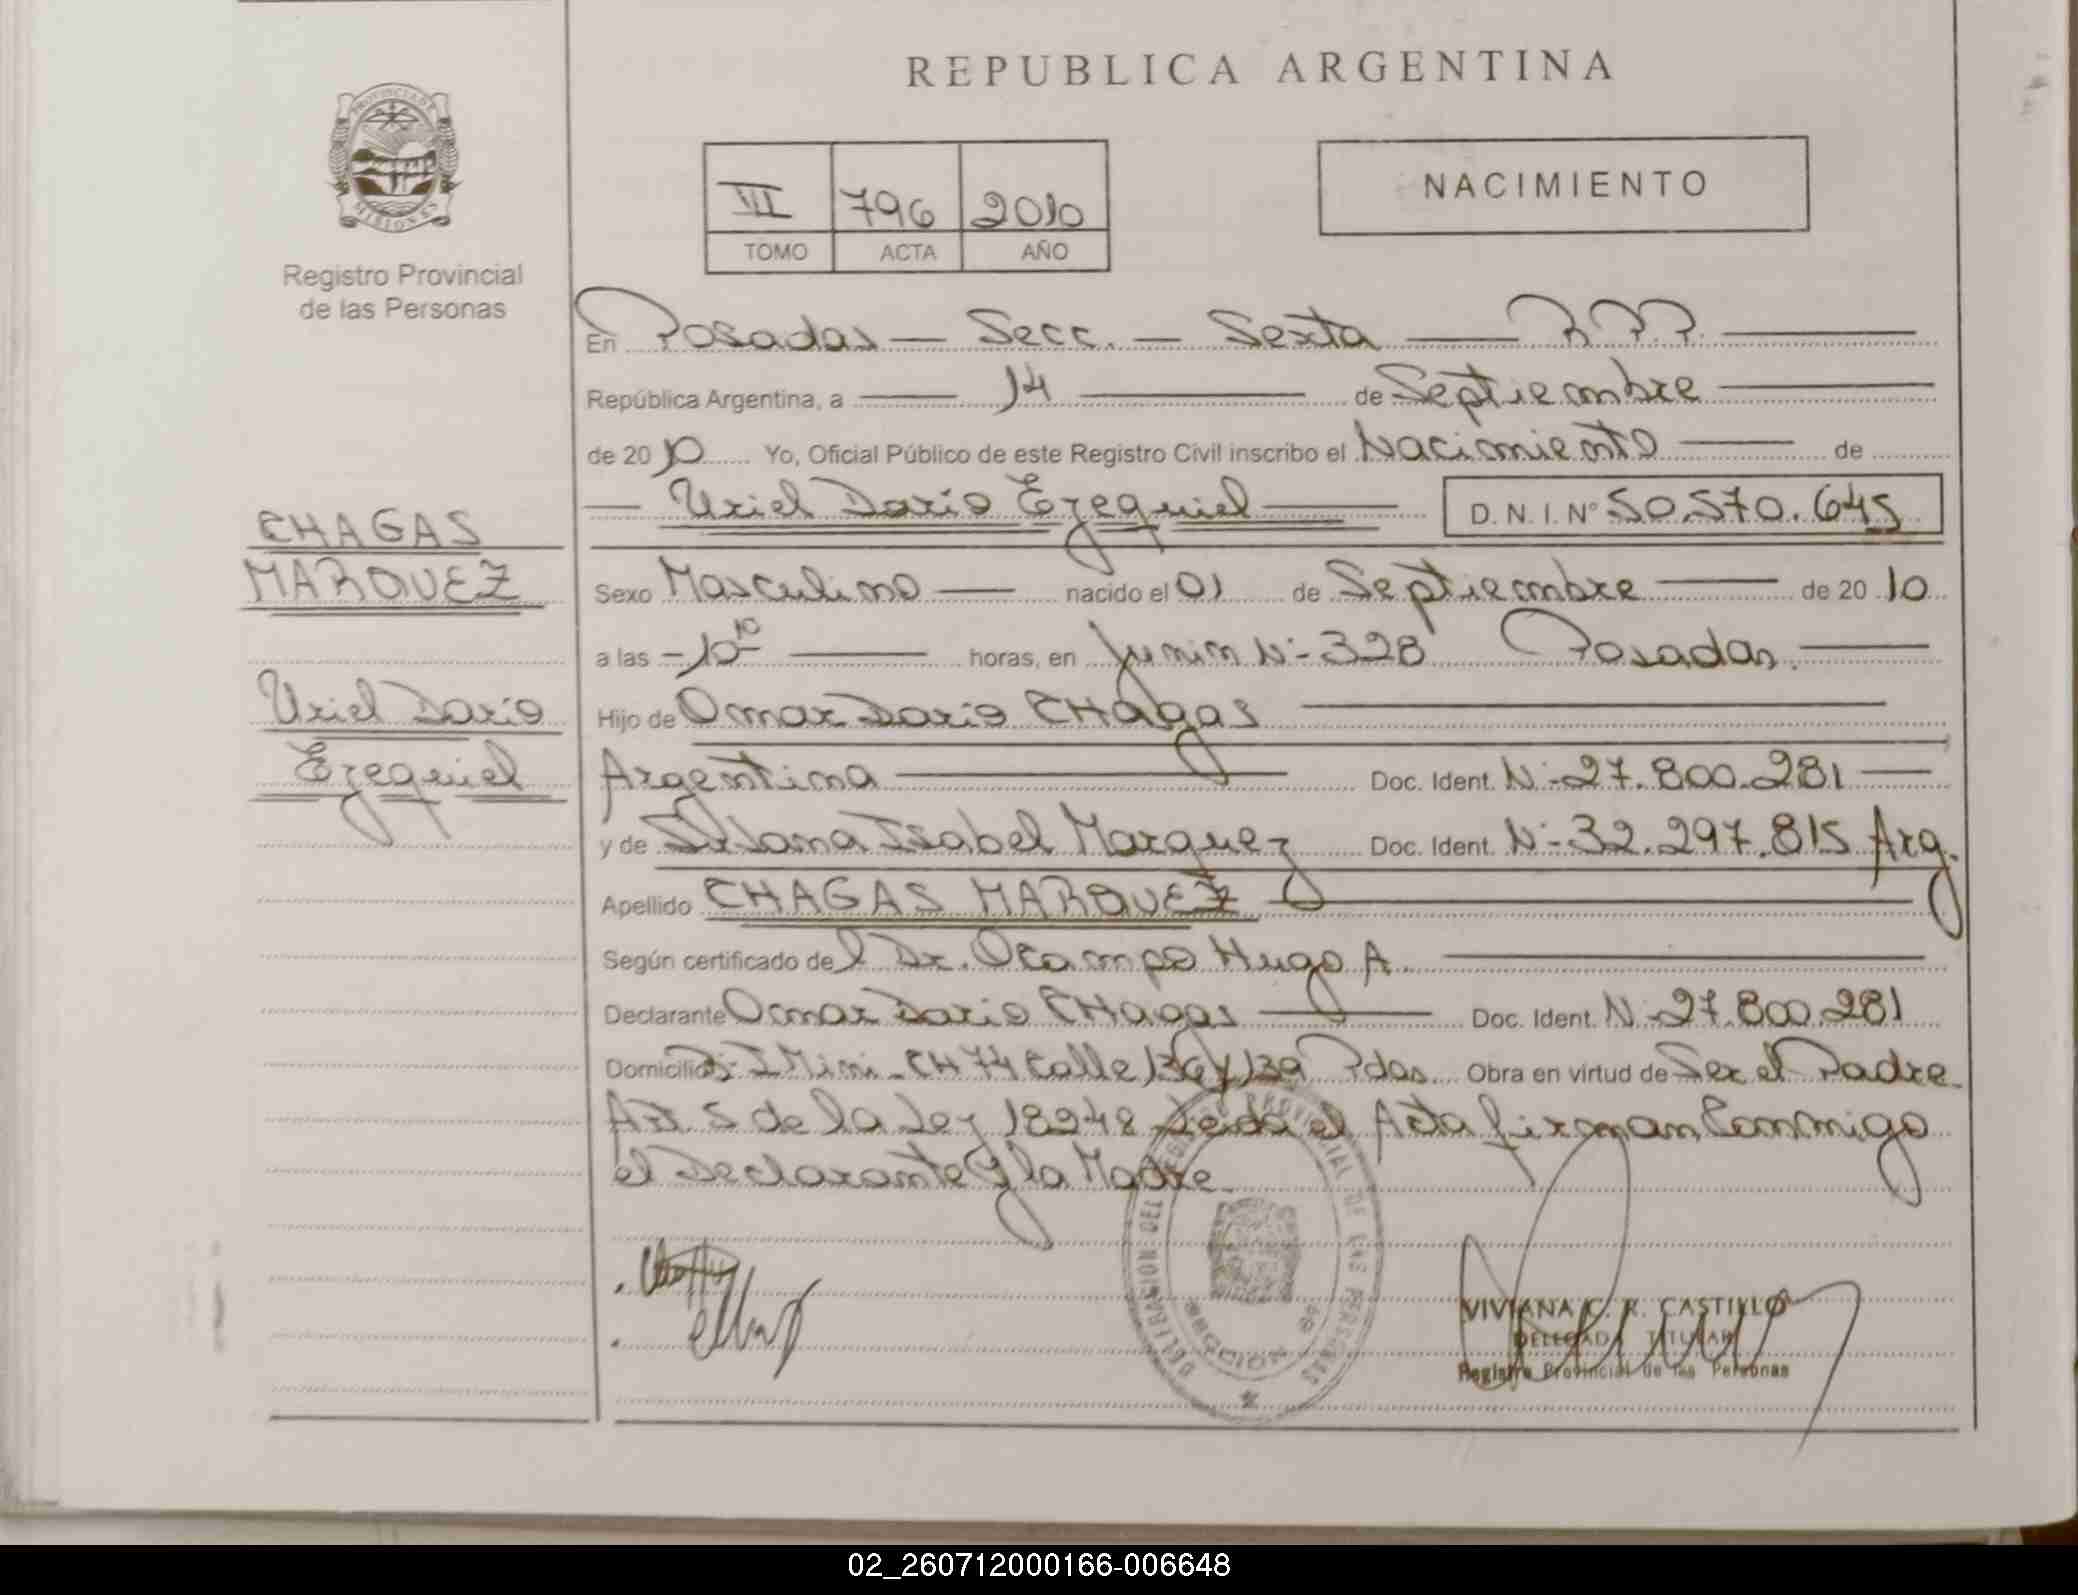 REPUBLICA ARGENTINA
PROVINCIA DE
MISIONES
Registro Provincial
de las Personas
VII 796 2010
TOMO ACTA AÑO
NACIMIENTO
En Posadas — Secc. — Sexta — R.P.P.
República Argentina, a — 14 — de Septiembre
de 2010 Yo, Oficial Público de este Registro Civil inscribo el Nacimiento — de
— Uriel Dario Ezequiel — D. N. I. Nº 50.570.645
CHAGAS
MARQUEZ
Uriel Dario
Ezequiel
Sexo Masculino — nacido el 01 de Septiembre — de 2010
a las -10 10 — horas, en Junin Nº 328 Posadas.
Hijo de Omar Dario CHagas
Argentina — Doc. Ident. Nº 27.800.281
y de Silvana Isabel Marquez Doc. Ident. Nº 32.297.815 Arg.
Apellido CHAGAS MARQUEZ
Según certificado del Dr. Ocampo Hugo A.
Declarante Omar Dario CHagas — Doc. Ident. Nº 27.800.281
Domicilio CH 74 Calle 136 y 139 Pdas. Obra en virtud de Ser el Padre.
Art. 5 de la Ley 18248 Leida el Acta firman Conmigo
el Declarante y la Madre.
DELEGACION DEL REGISTRO PROVINCIAL DE LAS PERSONAS
SECCION 6ª
VIVIANA C. R. CASTILLO
DELEGADA TITULAR
Registro Provincial de las Personas
02_260712000166-006648